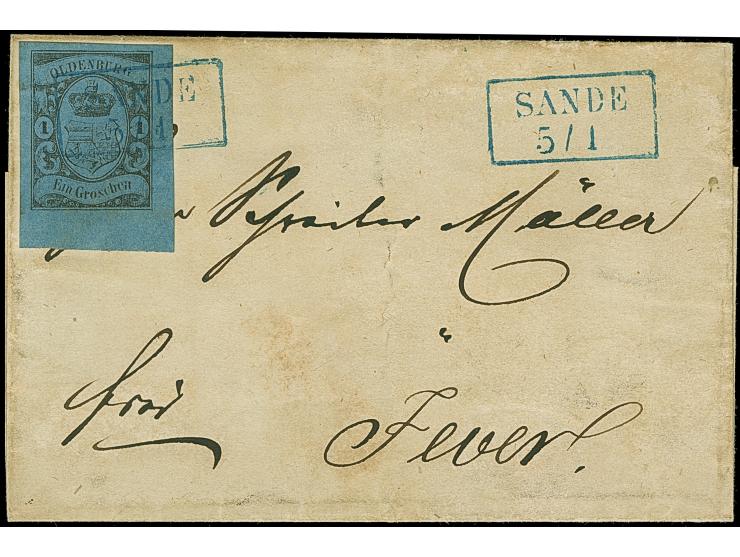 OLDENBURG
1 1
Ein Groschen
NDE
SANDE
5/1
Schreiber Müller
frei
Jever